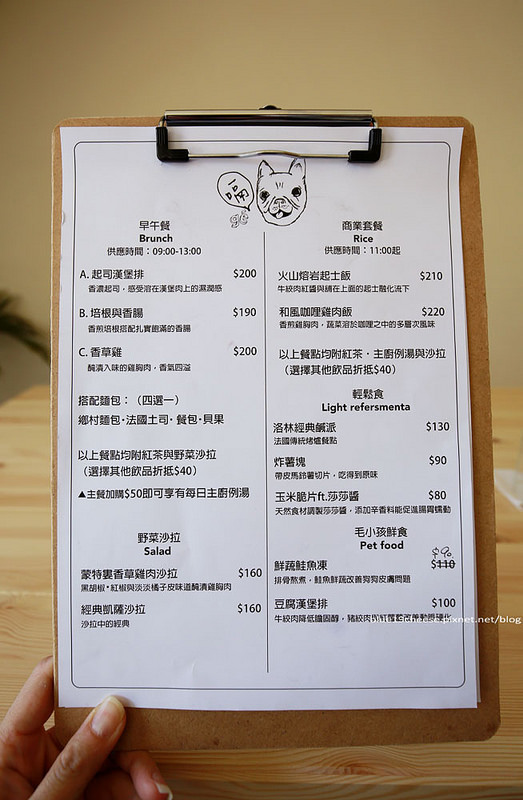 嗝
早午餐
Brunch
供應時間：09:00-13:00
A. 起司漢堡排 $200
香濃起司，感受溶在漢堡肉上的濕潤感
B. 培根與香腸 $190
香煎培根搭配扎實飽滿的香腸
C. 香草雞 $200
醃漬入味的雞胸肉，香氣四溢
搭配麵包：（四選一）
鄉村麵包·法國土司·餐包·貝果
以上餐點均附紅茶與野菜沙拉
（選擇其他飲品折抵$40）
▲主餐加購$50即可享有每日主廚例湯
野菜沙拉
Salad
蒙特婁香草雞肉沙拉 $160
黑胡椒·紅椒與淡淡橘子皮味道醃漬雞胸肉
經典凱薩沙拉 $160
沙拉中的經典
商業套餐
Rice
供應時間：11:00起
火山熔岩起士飯 $210
牛絞肉紅醬與舖在上面的起士融化流下
和風咖哩雞肉飯 $220
香煎雞胸肉，蔬菜溶於咖哩之中的多層次風味
以上餐點均附紅茶·主廚例湯與沙拉
（選擇其他飲品折抵$40）
輕鬆食
Light refersmenta
洛林經典鹹派 $130
法國傳統烤爐餐點
炸薯塊 $90
帶皮馬鈴薯切片，吃得到原味
玉米脆片ft.莎莎醬 $80
天然食材調製莎莎醬，添加辛香料能促進腸胃蠕動
毛小孩鮮食
Pet food
$90
鮮蔬鮭魚凍 $110
排骨熬煮，鮭魚鮮蔬改善狗狗皮膚問題
豆腐漢堡排 $100
牛絞肉降低膽固醇，豬絞肉與紅蘿蔔改善
pixnet.net/blog